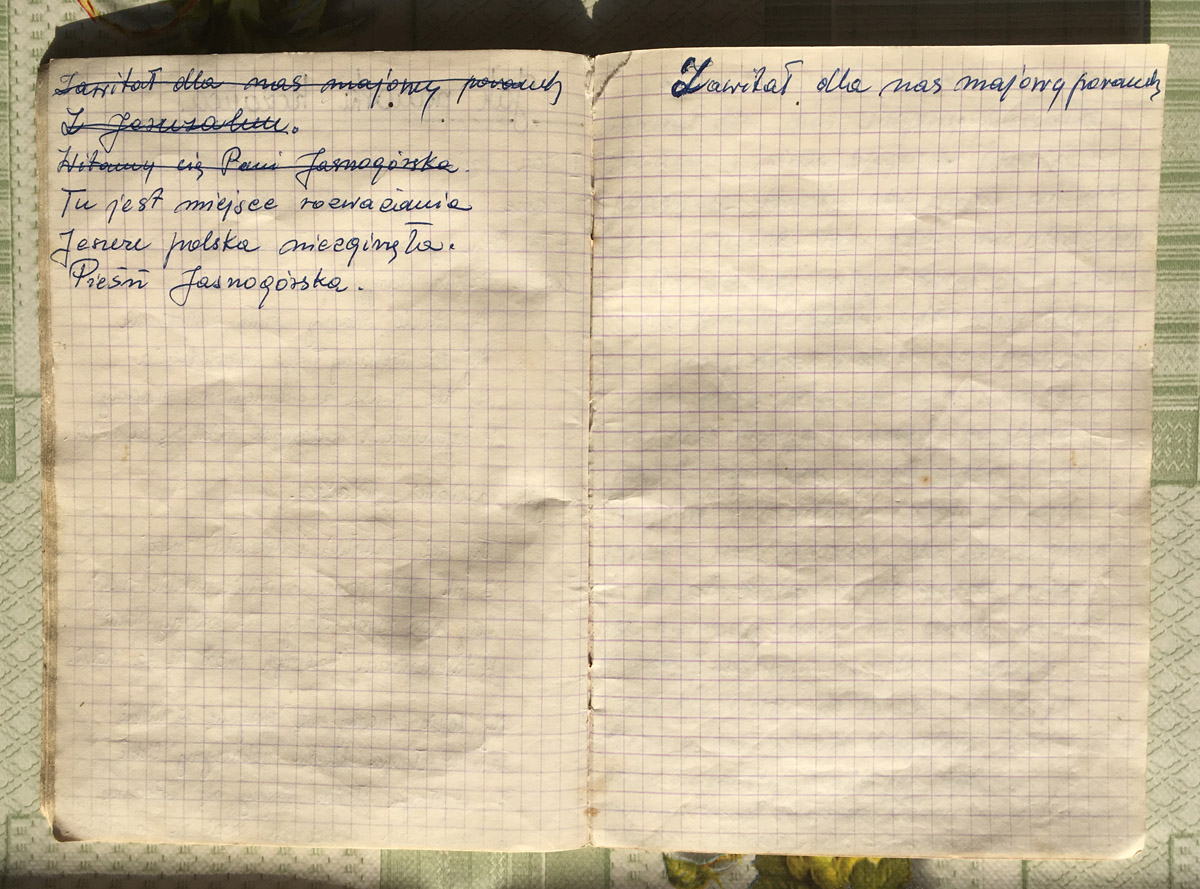 Zawitał dla nas majowy poranek
Z Jeruzalem.
Witamy cię Pani Jasnogórska.
Tu jest miejsce rozwaciania
Jeszcze polska niezginęła.
Pieśń Jasnogórska.
Zawitał dla nas majowy poranek